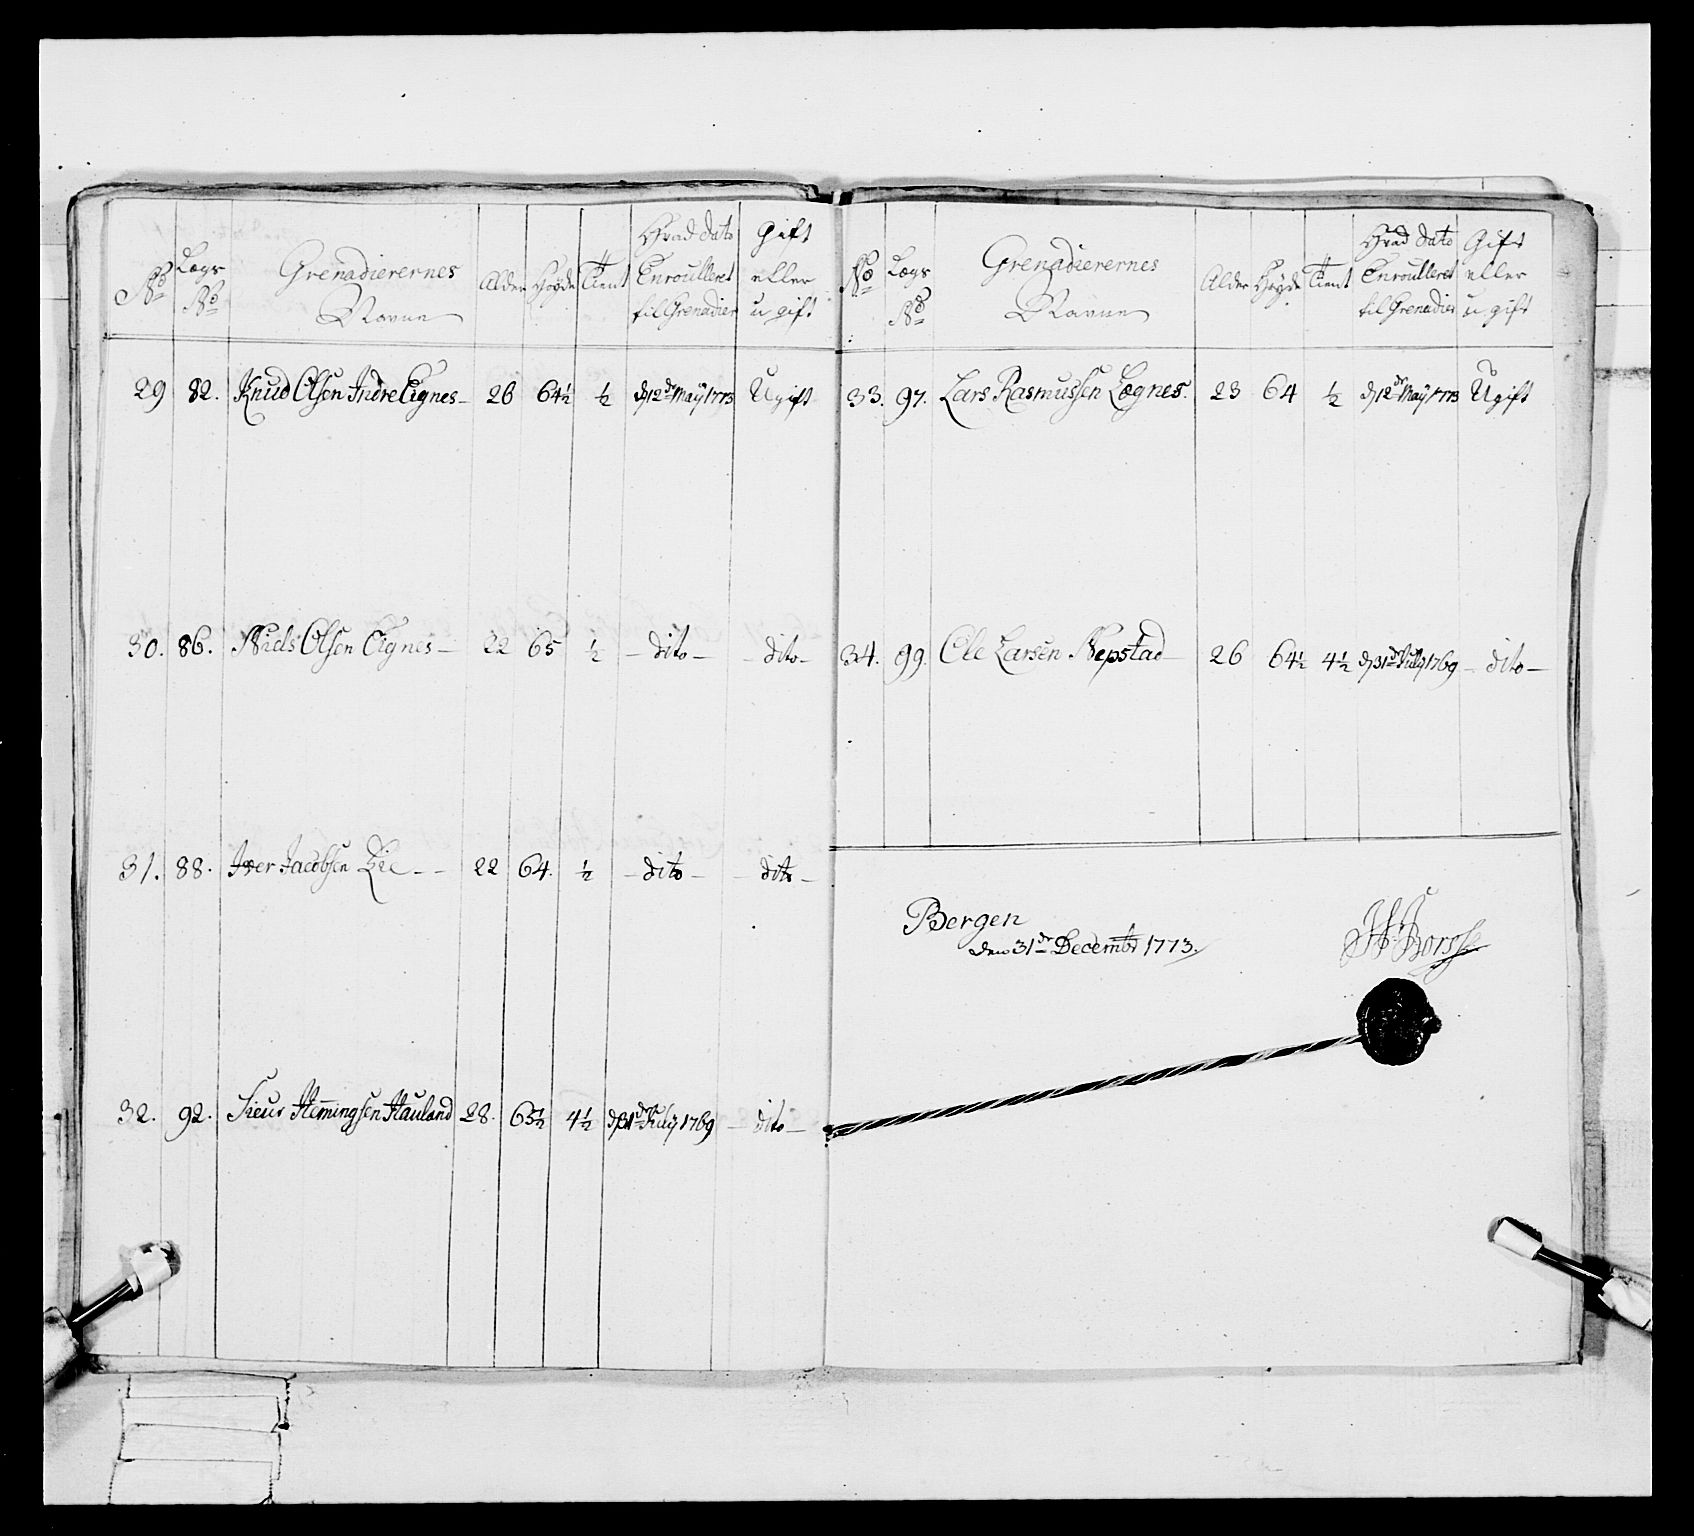 No Lægs No Grenadierernes Navne Alder Høyde Tient Hvad dato Enroulleret til Grenadier Gift eller ugift
29 82. Knud Olsen Indre Eignes 26 64½ ½ d 12de Maÿ 1773 Ugift
30. 86. Niels Olsen Eignes 22 65 ½ dito dito
31. 88. Iver Jacobsen Lie 22 64. ½ dito dito
32. 92. Sieur Hemingsen Hauland 28. 65½ 4½ d 31de Julÿ 1769 dito
No Lægs No Grenadierernes Navne Alder Høyde Tient Hvad dato Enroulleret til Grenadier Gift eller ugift
33. 97. Lars Rasmussen Løgnes. 23 64 ½ d 12de Maÿ 1773 Ugift
34. 99. Ole Larsen Nepstad 26 64½ 4½ d 31de Julÿ 1769 dito
Bergen
den 31de Decembr 1773.